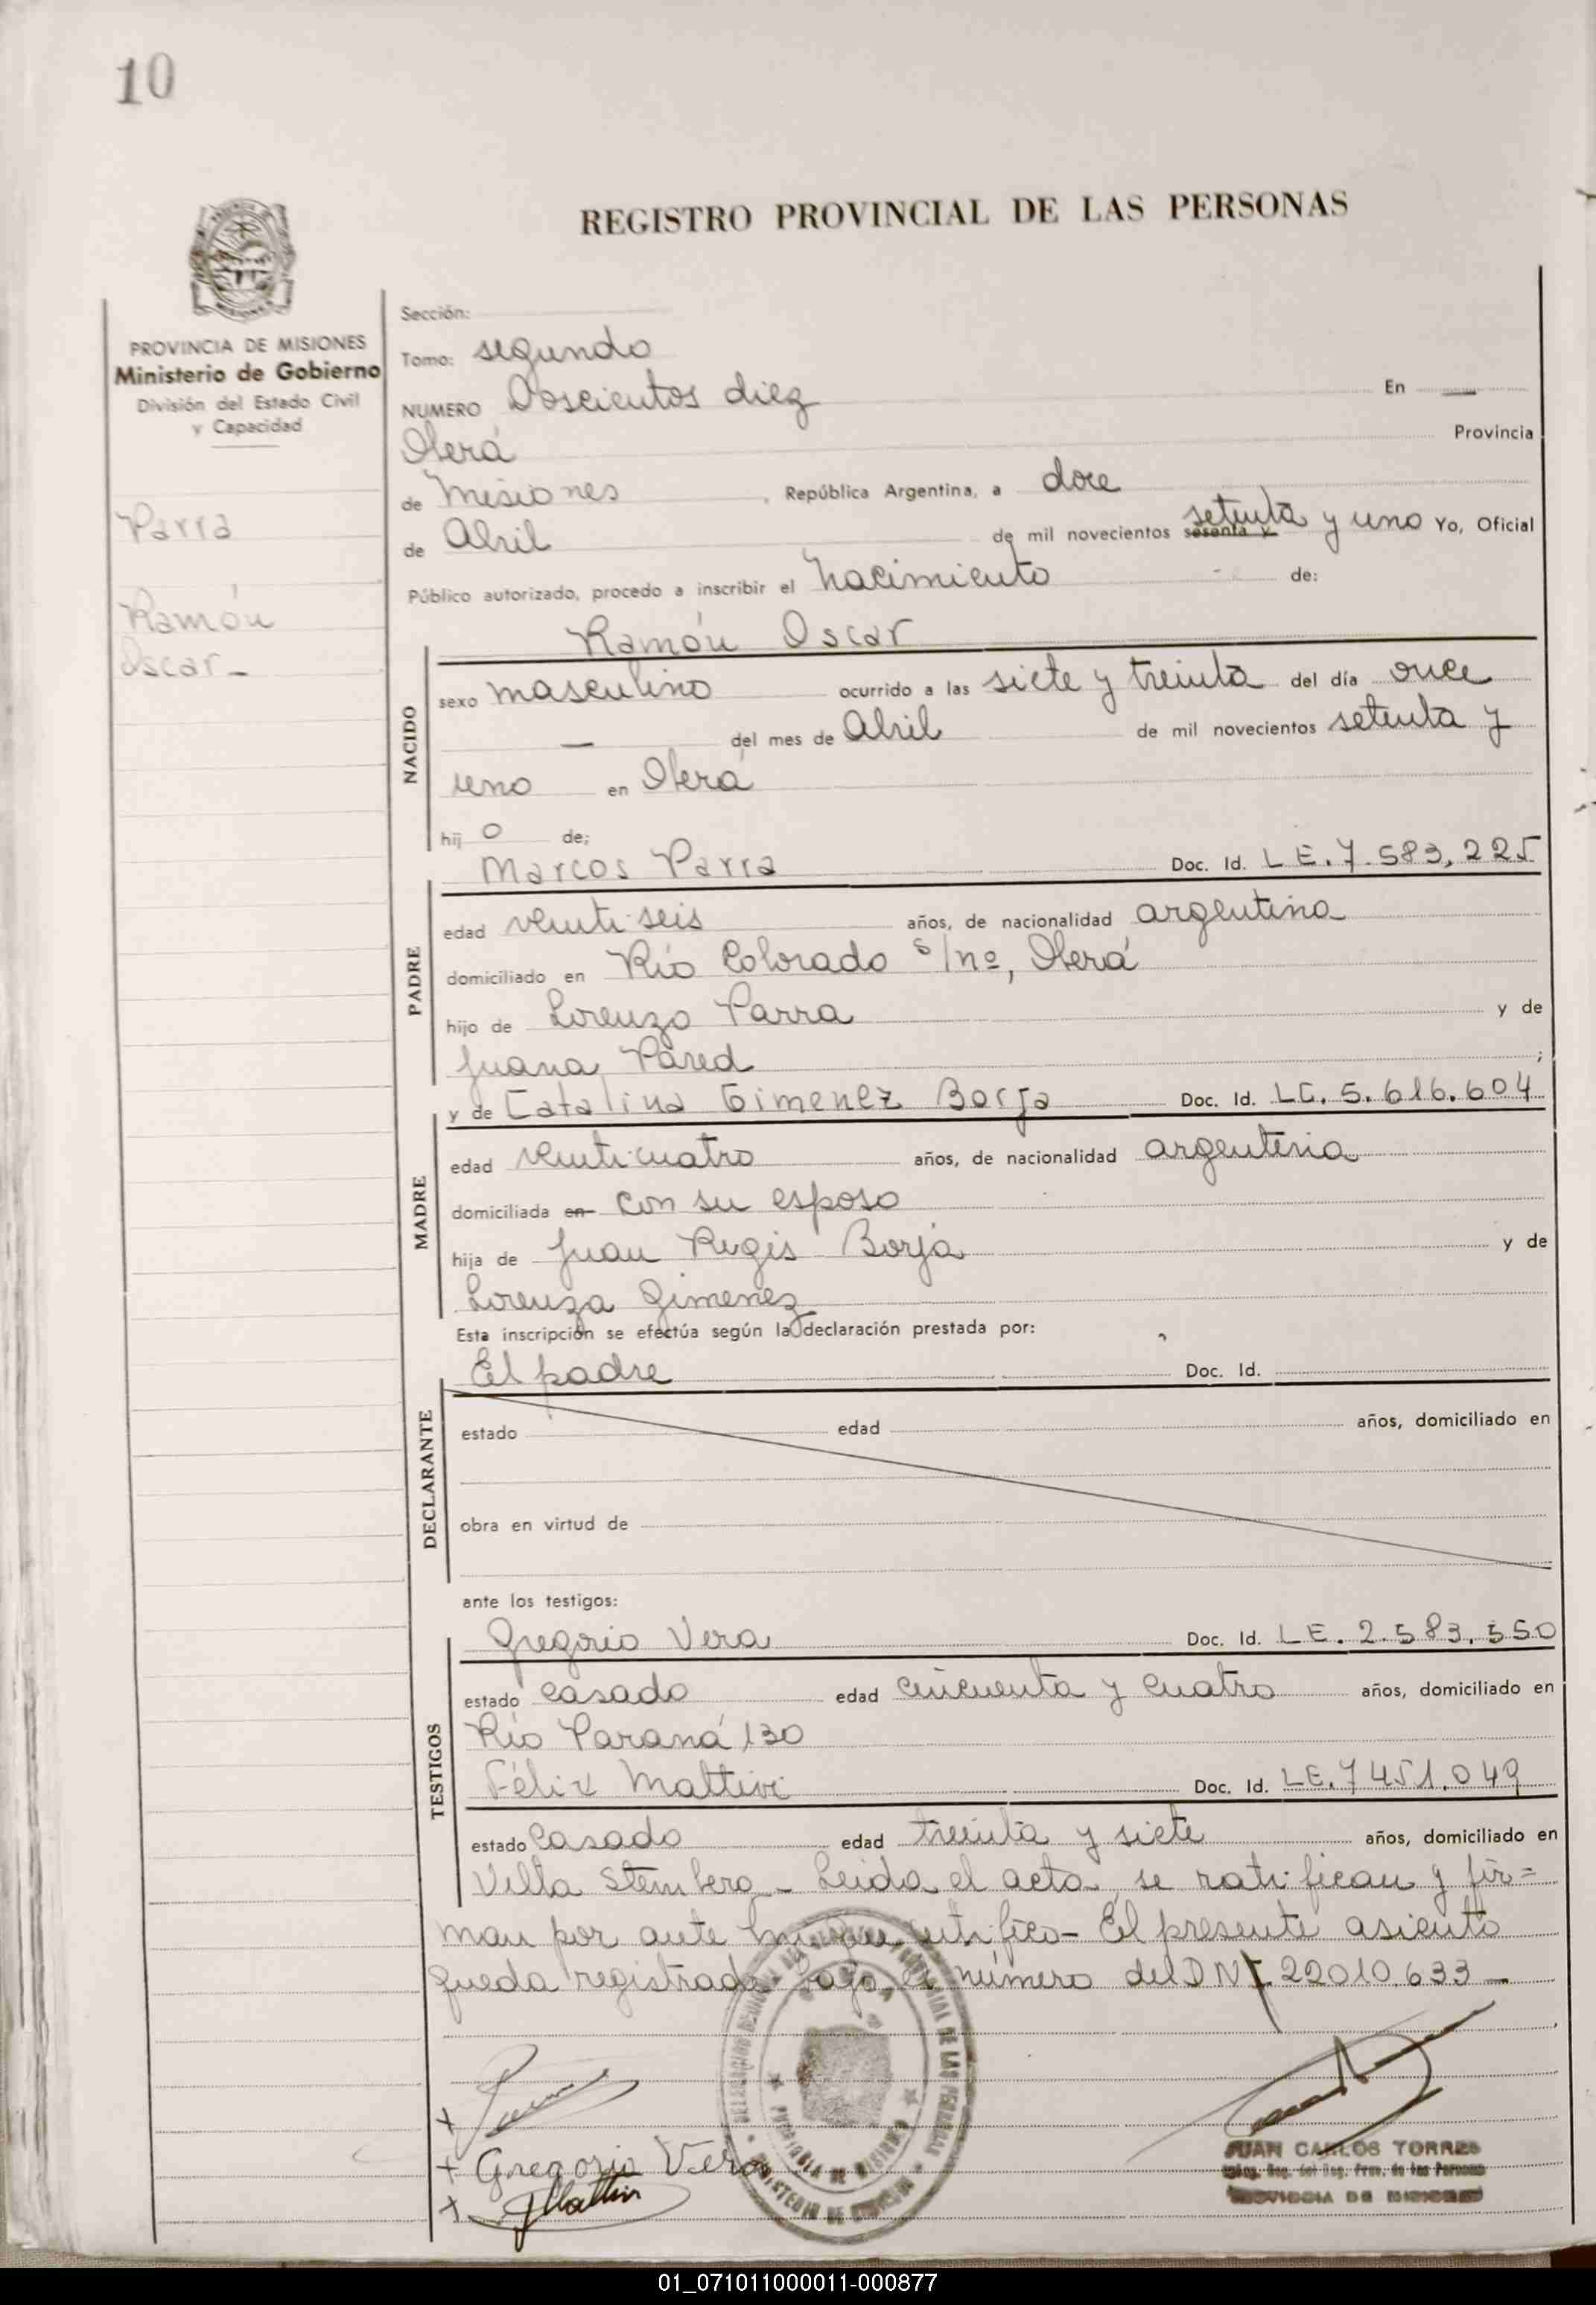 10
REGISTRO PROVINCIAL DE LAS PERSONAS
PROVINCIA DE MISIONES
Ministerio de Gobierno
División del Estado Civil
y Capacidad
Parra
Ramón
Oscar -
Sección:
Tomo: segundo
NUMERO Doscientos diez En —
Oberá Provincia
de Misiones, República Argentina, a doce
de Abril de mil novecientos sesenta y setenta y uno Yo, Oficial
Público autorizado, procedo a inscribir el nacimiento de:
Ramón Oscar
NACIDO
sexo masculino ocurrido a las siete y treinta del día once
— del mes de Abril de mil novecientos setenta y
uno en Oberá
hij o de;
Marcos Parra Doc. Id. L E. 7.583,225
PADRE
edad veintiseis años, de nacionalidad argentina
domiciliado en Río Colorado s/nº, Oberá
hijo de Lorenzo Parra y de
Juana Pared ;
y de Catalina Gimenez Borja Doc. Id. LC. 5.616.604
MADRE
edad veinticuatro años, de nacionalidad argentina
domiciliada en con su esposo
hija de Juan Regis Borja y de
Lorenza Gimenez
Esta inscripción se efectúa según la declaración prestada por:
El padre Doc. Id.
DECLARANTE
estado edad años, domiciliado en
obra en virtud de
ante los testigos:
Gregorio Vera Doc. Id. L E. 2.583.550
TESTIGOS
estado casado edad cincuenta y cuatro años, domiciliado en
Río Paraná 130
Félix Mattivi Doc. Id. LE. 7451.049
estado casado edad treinta y siete años, domiciliado en
Villa Stemberg - Leida el acta se ratifican y fir=
man por ante mi que certifico - El presente asiento
queda registrado bajo el número del DNI 22010.633 -
+
+ Gregorio Vera
+ Mattivi
JUAN CARLOS TORRES
PROVINCIA DE MISIONES
01_071011000011-000877